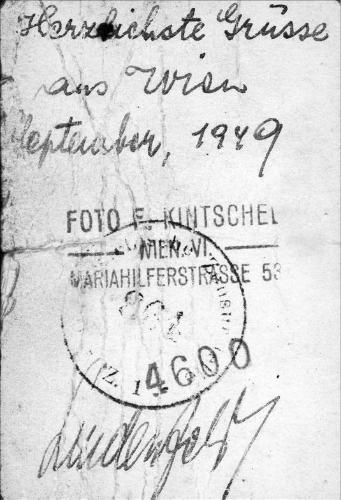 Herzlichste Grüsse
aus Wien
September, 1949
FOTO F. KINTSCHEL
WIEN, VI.
MARIAHILFERSTRASSE 53
4600